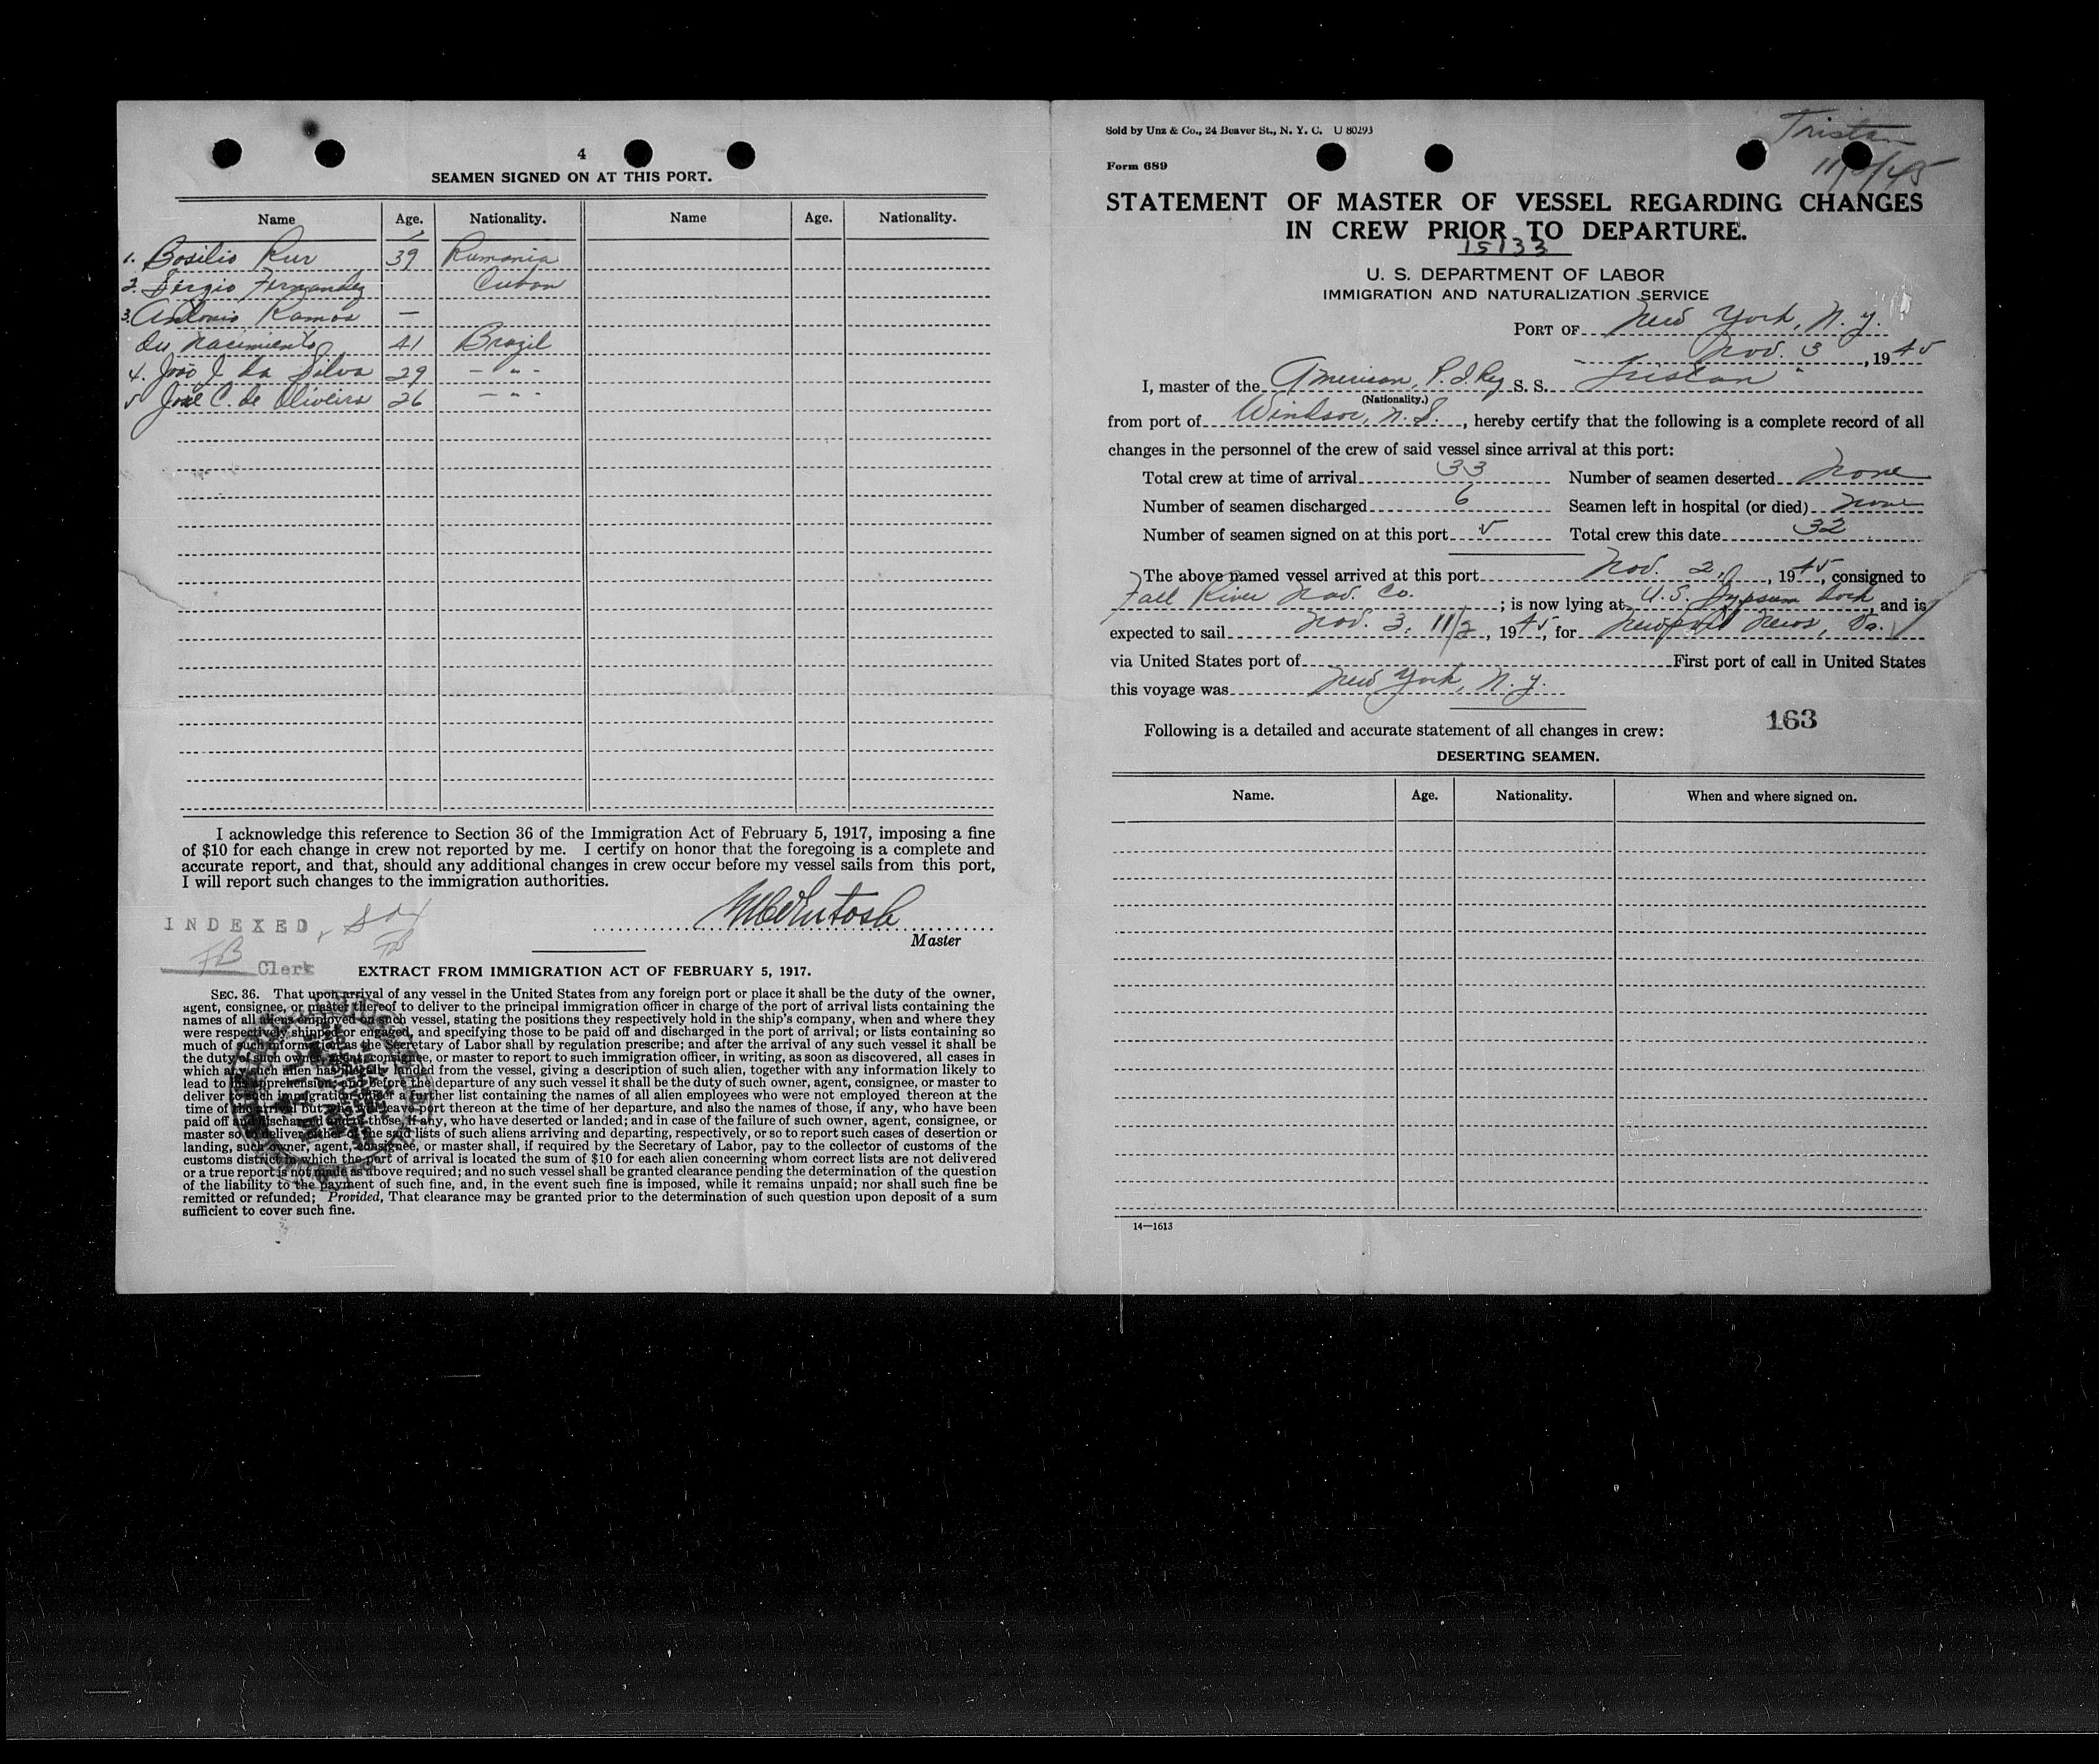 4
SEAMEN SIGNED ON AT THIS PORT.
Name Age. Nationality. Name Age. Nationality.
1. Basilio Rur 39 Rumania
2. Sergio Fernandez Cuban
3. Antonio Ramos —
du Nacimiento 41 Brazil
4. João J. da Silva 29 — " -
5 José C. de Oliveira 26 — " -
I acknowledge this reference to Section 36 of the Immigration Act of February 5, 1917, imposing a fine
of $10 for each change in crew not reported by me. I certify on honor that the foregoing is a complete and
accurate report, and that, should any additional changes in crew occur before my vessel sails from this port,
I will report such changes to the immigration authorities.
McIntosh
Master
INDEXED
Clerk
EXTRACT FROM IMMIGRATION ACT OF FEBRUARY 5, 1917.
SEC. 36. That upon arrival of any vessel in the United States from any foreign port or place it shall be the duty of the owner,
agent, consignee, or master thereof to deliver to the principal immigration officer in charge of the port of arrival lists containing the
names of all aliens employed on such vessel, stating the positions they respectively hold in the ship's company, when and where they
were respectively shipped or engaged, and specifying those to be paid off and discharged in the port of arrival; or lists containing so
much of such information as the Secretary of Labor shall by regulation prescribe; and after the arrival of any such vessel it shall be
the duty of such owner, agent, consignee, or master to report to such immigration officer, in writing, as soon as discovered, all cases in
which any such alien has illegally landed from the vessel, giving a description of such alien, together with any information likely to
lead to his apprehension; and before the departure of any such vessel it shall be the duty of such owner, agent, consignee, or master to
deliver to such immigration officer a further list containing the names of all alien employees who were not employed thereon at the
time of the arrival but who will leave port thereon at the time of her departure, and also the names of those, if any, who have been
paid off and discharged and of those, if any, who have deserted or landed; and in case of the failure of such owner, agent, consignee, or
master so to deliver either of the said lists of such aliens arriving and departing, respectively, or so to report such cases of desertion or
landing, such owner, agent, consignee, or master shall, if required by the Secretary of Labor, pay to the collector of customs of the
customs district in which the port of arrival is located the sum of $10 for each alien concerning whom correct lists are not delivered
or a true report is not made as above required; and no such vessel shall be granted clearance pending the determination of the question
of the liability to the payment of such fine, and, in the event such fine is imposed, while it remains unpaid; nor shall such fine be
remitted or refunded; Provided, That clearance may be granted prior to the determination of such question upon deposit of a sum
sufficient to cover such fine.
Sold by Unz & Co., 24 Beaver St., N. Y. C. U 80293
Tristan
Form 689
STATEMENT OF MASTER OF VESSEL REGARDING CHANGES
IN CREW PRIOR TO DEPARTURE.
15133
U. S. DEPARTMENT OF LABOR
IMMIGRATION AND NATURALIZATION SERVICE
PORT OF New York, N.Y.
Nov. 3, 1945
I, master of the American, S. S. "Tristan"
(Nationality.)
from port of Windsor, N.S., hereby certify that the following is a complete record of all
changes in the personnel of the crew of said vessel since arrival at this port:
Total crew at time of arrival 33 Number of seamen deserted None
Number of seamen discharged 6 Seamen left in hospital (or died) None
Number of seamen signed on at this port 5 Total crew this date 32
The above named vessel arrived at this port Nov. 2, 1945, consigned to
Fall River Nav. Co.; is now lying at U.S. Gypsum Dock, and is
expected to sail Nov. 3, 11/2, 1945, for Newport News, Va.
via United States port of First port of call in United States
this voyage was New York, N.Y.
163
Following is a detailed and accurate statement of all changes in crew:
DESERTING SEAMEN.
Name. Age. Nationality. When and where signed on.
14—1613